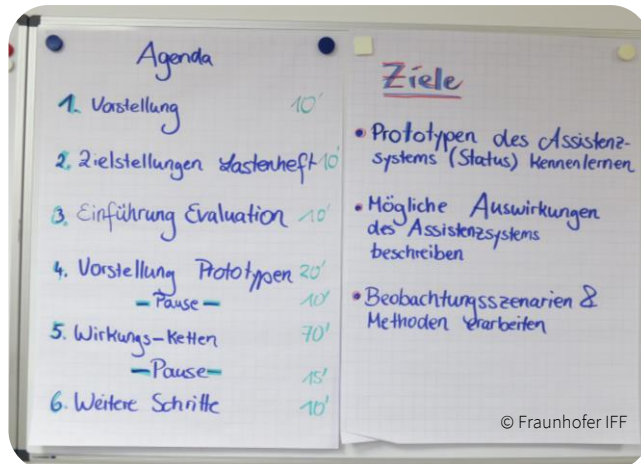 Agenda
1. Vorstellung 10'
2. Zielstellungen Lastenheft 10'
3. Einführung Evaluation 10'
4. Vorstellung Prototypen 20'
– Pause – 10'
5. Wirkungs-Ketten 70'
– Pause – 15'
6. Weitere Schritte 10'
Ziele
• Prototypen des Assistenz-
systems (Status) kennenlernen
• Mögliche Auswirkungen
des Assistenzsystems
beschreiben
• Beobachtungsszenarien &
Methoden erarbeiten
© Fraunhofer IFF